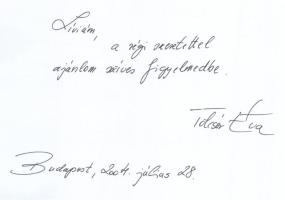 Líviám,
a régi szeretettel
ajánlom szíves figyelmedbe.
Tolcsér Éva
Budapest, 2004. július 28.